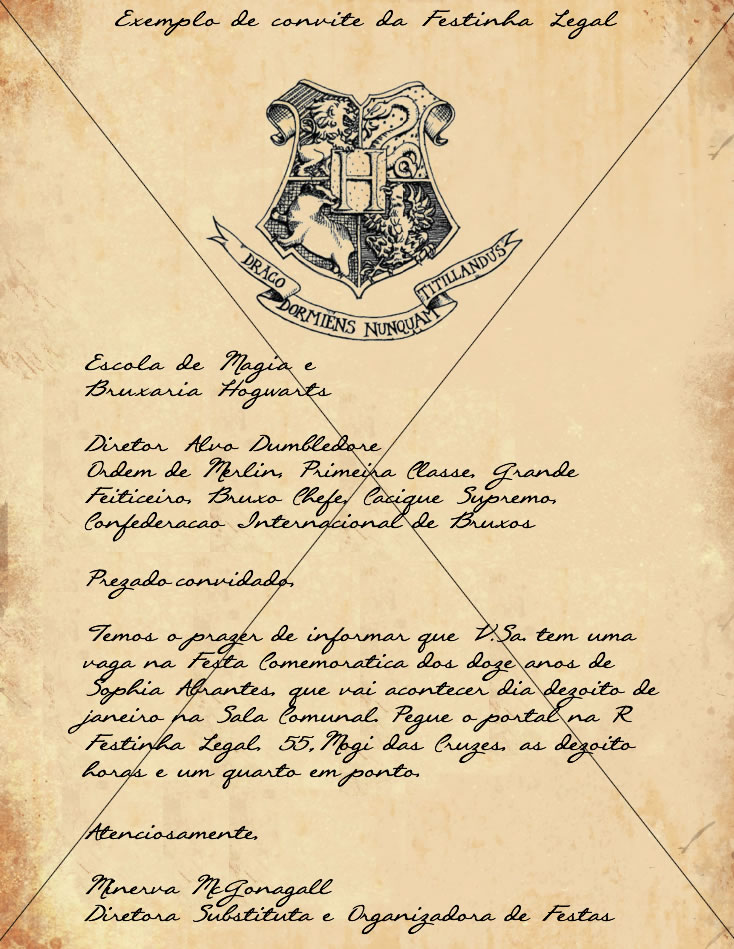 Exemplo de convite da Festinha Legal
H
DRACO
DORMIENS NUNQUAM
TITILLANDUS
Escola de Magia e
Bruxaria Hogwarts
Diretor Alvo Dumbledore
Ordem de Merlin, Primeira Classe, Grande
Feiticeiro, Bruxo Chefe, Cacique Supremo,
Confederacao Internacional de Bruxos
Prezado convidado,
Temos o prazer de informar que V.Sa. tem uma
vaga na Festa Comemoratica dos doze anos de
Sophia Abrantes, que vai acontecer dia dezoito de
janeiro na Sala Comunal. Pegue o portal na R
Festinha Legal, 55, Mogi das Cruzes, as dezoito
horas e um quarto em ponto.
Atenciosamente,
Minerva McGonagall
Diretora Substituta e Organizadora de Festas